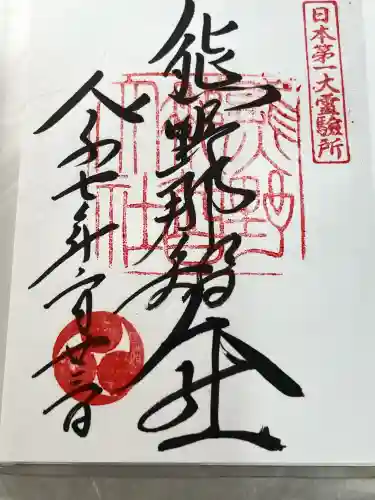 日本第一大霊験所
熊野那智大社
令和七年六月廿二日